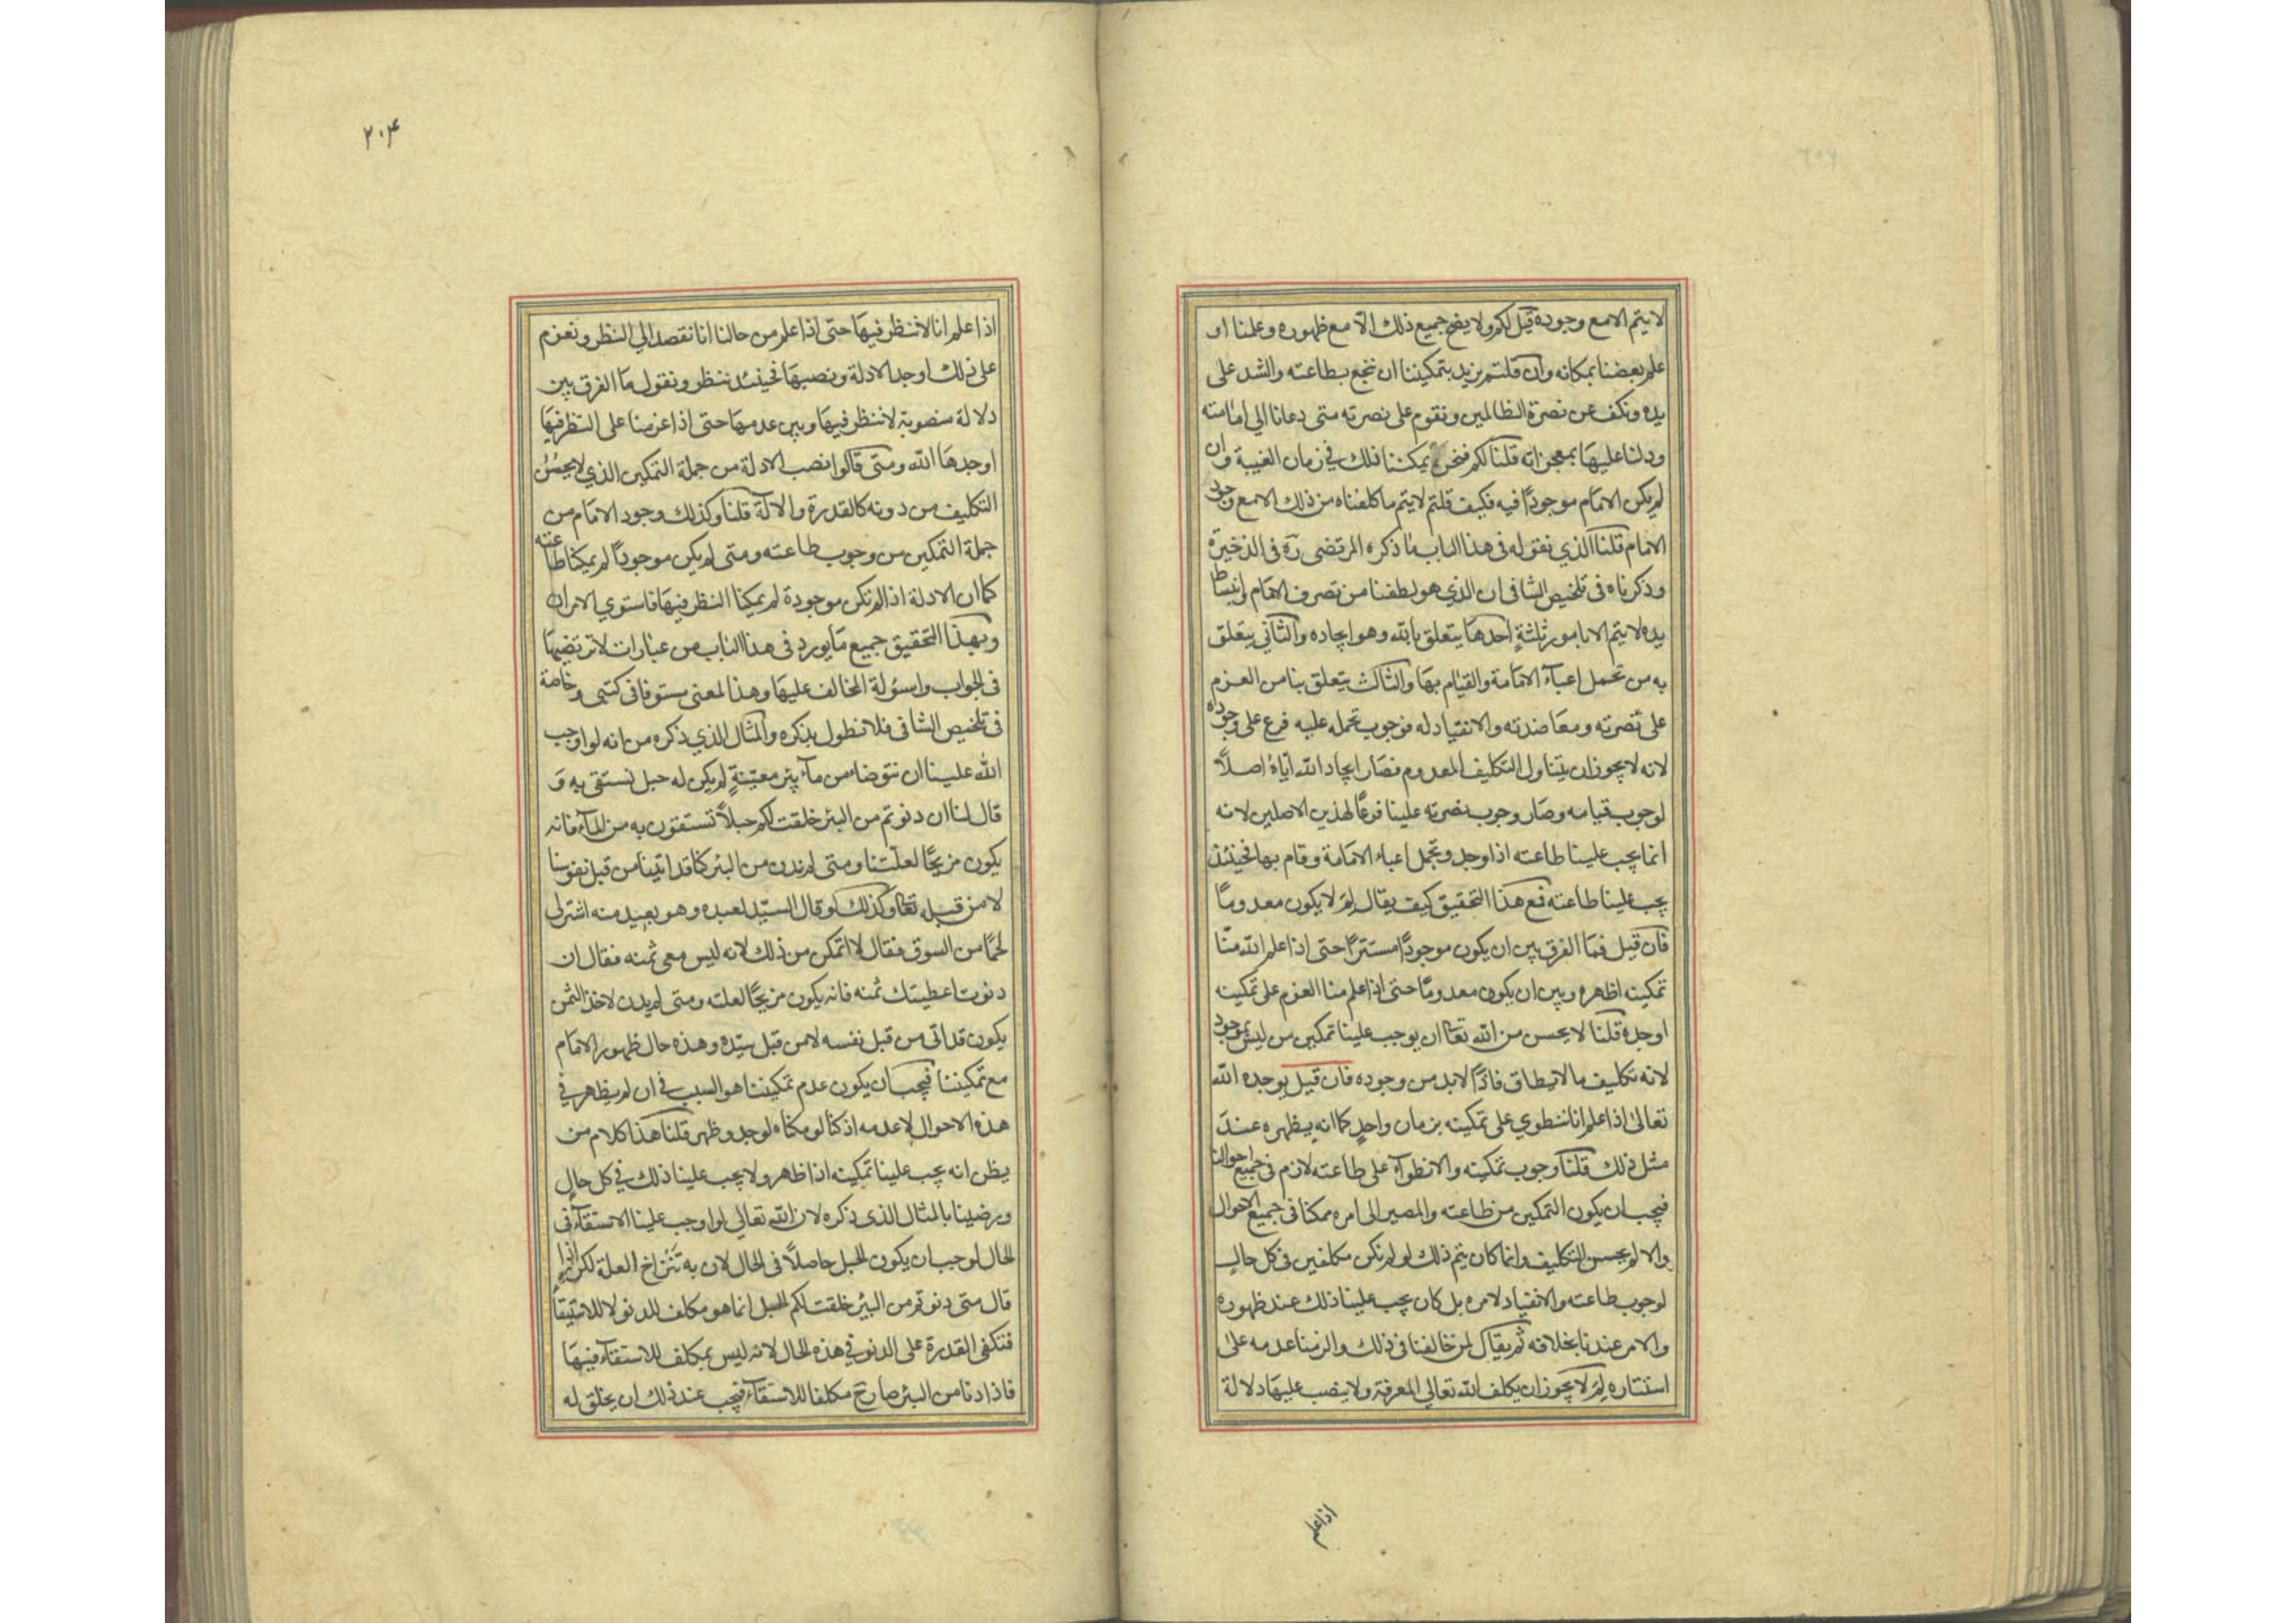 لا يتم الا مع وجوده قيل لكم ولا يصح جميع ذلك الّا مع ظهوره وعلمنا او
علم بعضنا بمكانه وان قلتم نريد بتمكيننا ان نبخع بطاعته والشد على
يده ونكف عن نصرة الظالمين ونقوم على نصرته متى دعانا الي امامته
ودلنا عليها بمعجزاته قلنا لكم فنحن يمكننا ذلك في زمان الغيبة وان
لم يكن الامام موجودًا فيه فكيف قلتم لا يتم ما كلفناه من ذلك الا مع وجود
الامام قلنا الذي نقوله فى هذا الباب ما ذكره المرتضى ره فى الذخيرة
وذكرناه فى تلخيص الشافى ان الذي هو لطفنا من تصرف الامام وانبساط
يده لا يتم الا بامور ثلثةٍ احدها يتعلق بالله وهو ايجاده والثاني يتعلق
به من تحمل اعبآء الامامة والقيام بها والثالث يتعلق بنا من العزم
على نصرته ومعاضدته والانقياد له فوجوب تحمله عليه فرع على وجوده
لانه لا يجوز ان يتناول التكليف المعدوم فصار ايجاد الله اياهُ اصلاً
لوجوب قيامه وصار وجوب نصرته علينا فرعًا لهذين الاصلين لانه
انما يجب علينا طاعته اذا وجد وتحمل اعباء الامامة وقام بها فحينئذ
يجب علينا طاعته فمع هذا التحقيق كيف يقال لِمَ لا يكون معدومًا
فان قيل فما الفرق بين ان يكون موجودًا مستترًا حتى اذا علم الله منّا
تمكينه اظهره وبين ان يكون معدومًا حتى اذا علم منا العزم على تمكينه
اوجده قلنا لا يحسن من الله تعا ان يوجب علينا تمكين من ليس بموجود
لانه تكليف ما لا يطاق فاذًا لا بد من وجوده فان قيل يوجده الله
تعالى اذا علم انا ننطوي على تمكينه بزمان واحدٍ كما انه يظهره عندَ
مثل ذلك قلنا وجوب تمكينه والانطوآء على طاعته لازم فى جميع احوالنا
فيجب ان يكون التمكين من طاعته والمصير الى امره ممكنا فى جميع الاحوال
والا لم يحسن التكليف وانما كان يتم ذلك لو لم نكن مكلفين فى كل حال
لوجوب طاعته والانقياد لامره بل كان يجب علينا ذلك عند ظهوره
والامر عندنا بخلافه ثم يقال لمن خالفنا فى ذلك والزمنا عدمه على
استتاره لِمَ لا يجوز ان يكلف الله تعالى المعرفة ولا ينصب عليها دلالة
اذا علم
٢٠۴
اذا علم انا لا ننظر فيها حتى اذا علم من حالنا انا نقصد الي النظر ونعزم
على ذلك اوجد الادلة ونصبها فحينئذ ننظر ونقول ما الفرق بين
دلالة منصوبة لا ننظر فيها وبين عدمها حتى اذا عزمنا على النظر فيها
اوجدها الله ومتى قالوا نصب الادلة من جملة التمكين الذي لا يحسُنُ
التكليف من دونه كالقدرة والالة قلنا وكذلك وجود الامام من
جملة التمكين من وجوب طاعته ومتى لم يكن موجودًا لم يمكنا طاعته
كما ان الادلة اذا لم تكن موجودة لم يمكنا النظر فيها فاستوي الامران
وبهذا التحقيق جميع ما يورد فى هذا الباب من عبارات لا نرتضيها
فى الجواب واسوُلة المخالف عليها وهذا المعنى مستوفا فى كتبى وخاصة
فى تلخيص الشافى فلا نطول بذكره والمثال الذي ذكره من انه لو اوجب
الله علينا ان نتوضاء من مآء بئر معيّنةٍ لم يكن له حبل نستقى به وَ
قال لنا ان دنوتم من البئر خلقت لكم حبلاً تستقون به من المآء فانه
يكون مزيحًا لعلّتنا ومتى لم ندن من البئر كنا قد اتينا من قبل نفوسنا
لا من قبله تعا وكذلك لو قال السيّد لعبده وهو بعيد منه اشتر لى
لحمًا من السوق فقال لا اتمكن من ذلك لانه ليس معى ثمنه فقال ان
دنوت اعطيتك ثمنه فانه يكون مزيحًا لعلته ومتى لم يدن لاخذ الثمن
يكون قد اتى من قبل نفسه لا من قبل سيّده وهذه حال ظهور الامام
مع تمكيننا فيجب ان يكون عدم تمكيننا هو السبب في ان لم يظهر في
هذه الاحوال لا عدمه اذ كنا لو مكناه لوجد وظهر قلنا هذا كلام من
يظن انه يجب علينا تمكينه اذا ظهر ولا يجب علينا ذلك في كل حالٍ
ورضينا بالمثال الذى ذكره لان الله تعالى لو اوجب علينا الاستقآء فى
الحال لوجب ان يكون الحبل حاصلاً فى الحال لان به تنزاح العلة لكن اذا
قال متى دنوتم من البئر خلقت لكم الحبل انما هو مكلف للدنو لا للاستقاء
فتكفى القدرة على الدنو في هذه الحال لانه ليس بمكلف للاستقآء فيها
فاذا دنا من البئر صار ح مكلفا للاستقآء فيجب عند ذلك ان يخلق له